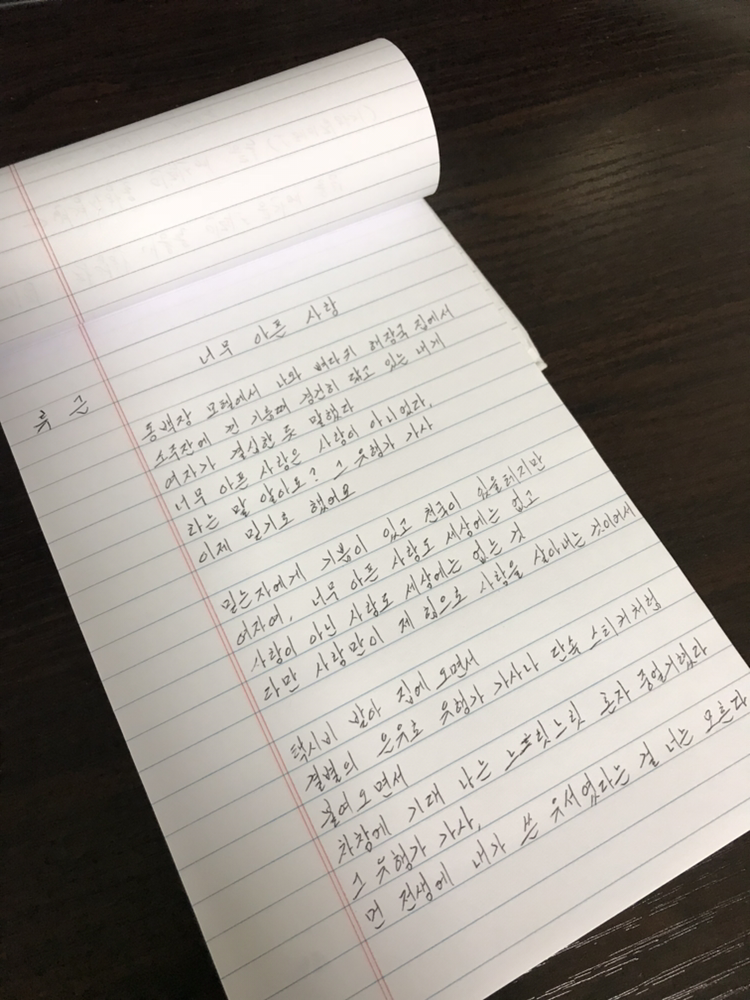 너무 아픈 사랑
류 근
동백장 모텔에서 나와 뼈다귀 해장국 집에서
소주잔에 낀 기름때 경건히 닦고 있는 내게
여자가 결심한 듯 말했다
너무 아픈 사랑은 사랑이 아니었다,
라는 말 알아요? 그 유행가 가사
이제 믿기로 했어요
믿는자에게 기쁨이 있고 천국이 있을터지만
여자여, 너무 아픈 사랑도 세상에는 없고
사랑이 아닌 사랑도 세상에는 없는 것
다만 사랑만이 제 힘으로 사랑을 살아내는 것이어서
택시비 받아 집에 오면서
결별의 은유로 유행가 가사나 단속 스티커처럼
붙여오면서
차창에 기대 나는 느릿느릿 혼자 중얼거렸다
그 유행가 가사,
먼 전생에 내가 쓴 유서였다는 걸 너는 모른다